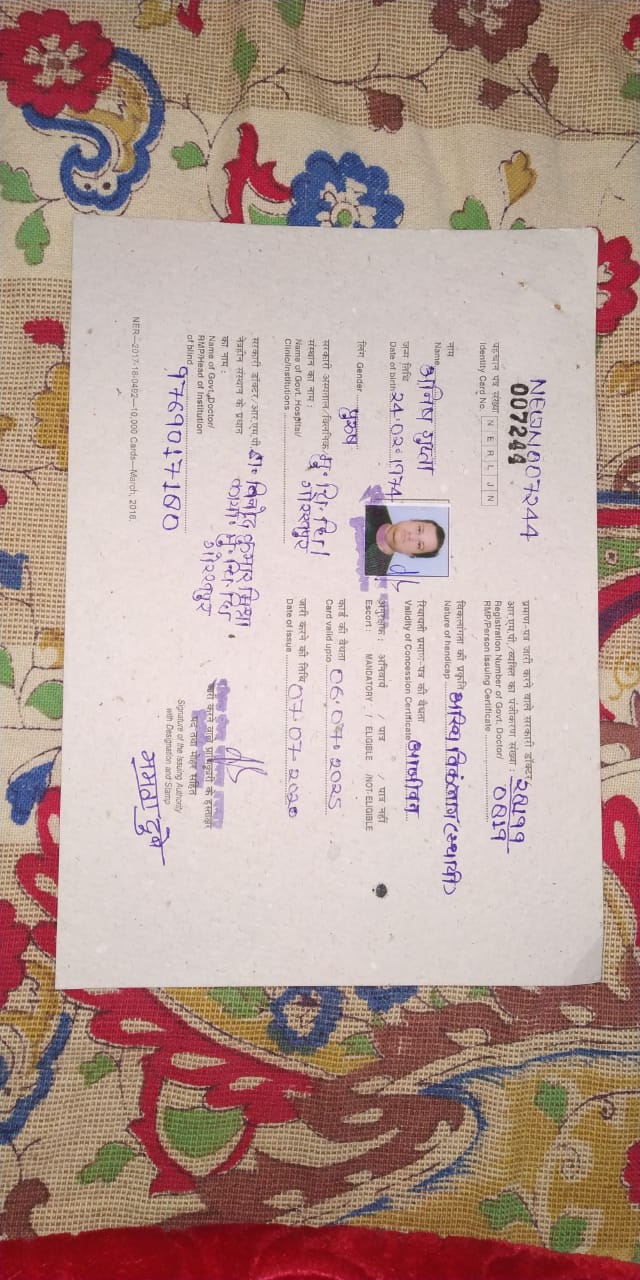 NEGN007244
007244
पहचान पत्र संख्या
Identity Card No. N E R L J N
नाम
Name
जन्म तिथि
Date of birth 24.02.1974
लिंग Gender पुरुष
सरकारी अस्पताल/क्लिनिक
संस्थान का नाम :
Name of Govt. Hospital/
Clinic/Institutions
गोरखपुर
सरकारी डॉक्टर/आर.एम.पी.
नेत्रहीन संस्थान के प्रधान
का नाम :
डा. विनोद कुमार मिश्रा
गोरखपुर
Name of Govt. Doctor/
RMP/Head of Institution
of blind
9769017180
NER—2017-18-0492—10,000 Cards—March, 2018.
प्रमाण-पत्र जारी करने वाले सरकारी डॉक्टर
आर.एम.पी./व्यक्ति का पंजीकरण संख्या :
Registration Number of Govt. Doctor/
RMP/Person Issuing Certificate
विकलांगता की प्रकृति
Nature of handicap
रियायती प्रमाण-पत्र की वैधता
Validity of Concession Certificate आजीवन
अनुरक्षक : अनिवार्य / पात्र / पात्र नहीं
Escort : MANDATORY / ELIGIBLE /NOT-ELIGIBLE
कार्ड की वैधता
Card valid upto 06.07.2025
जारी करने की तिथि
Date of Issue 07-07-2020
जारी करने वाले प्राधिकारी के हस्ताक्षर
पद तथा मोहर सहित
Signature of the Issuing Authority
with Designation and Stamp
ममता दुबे